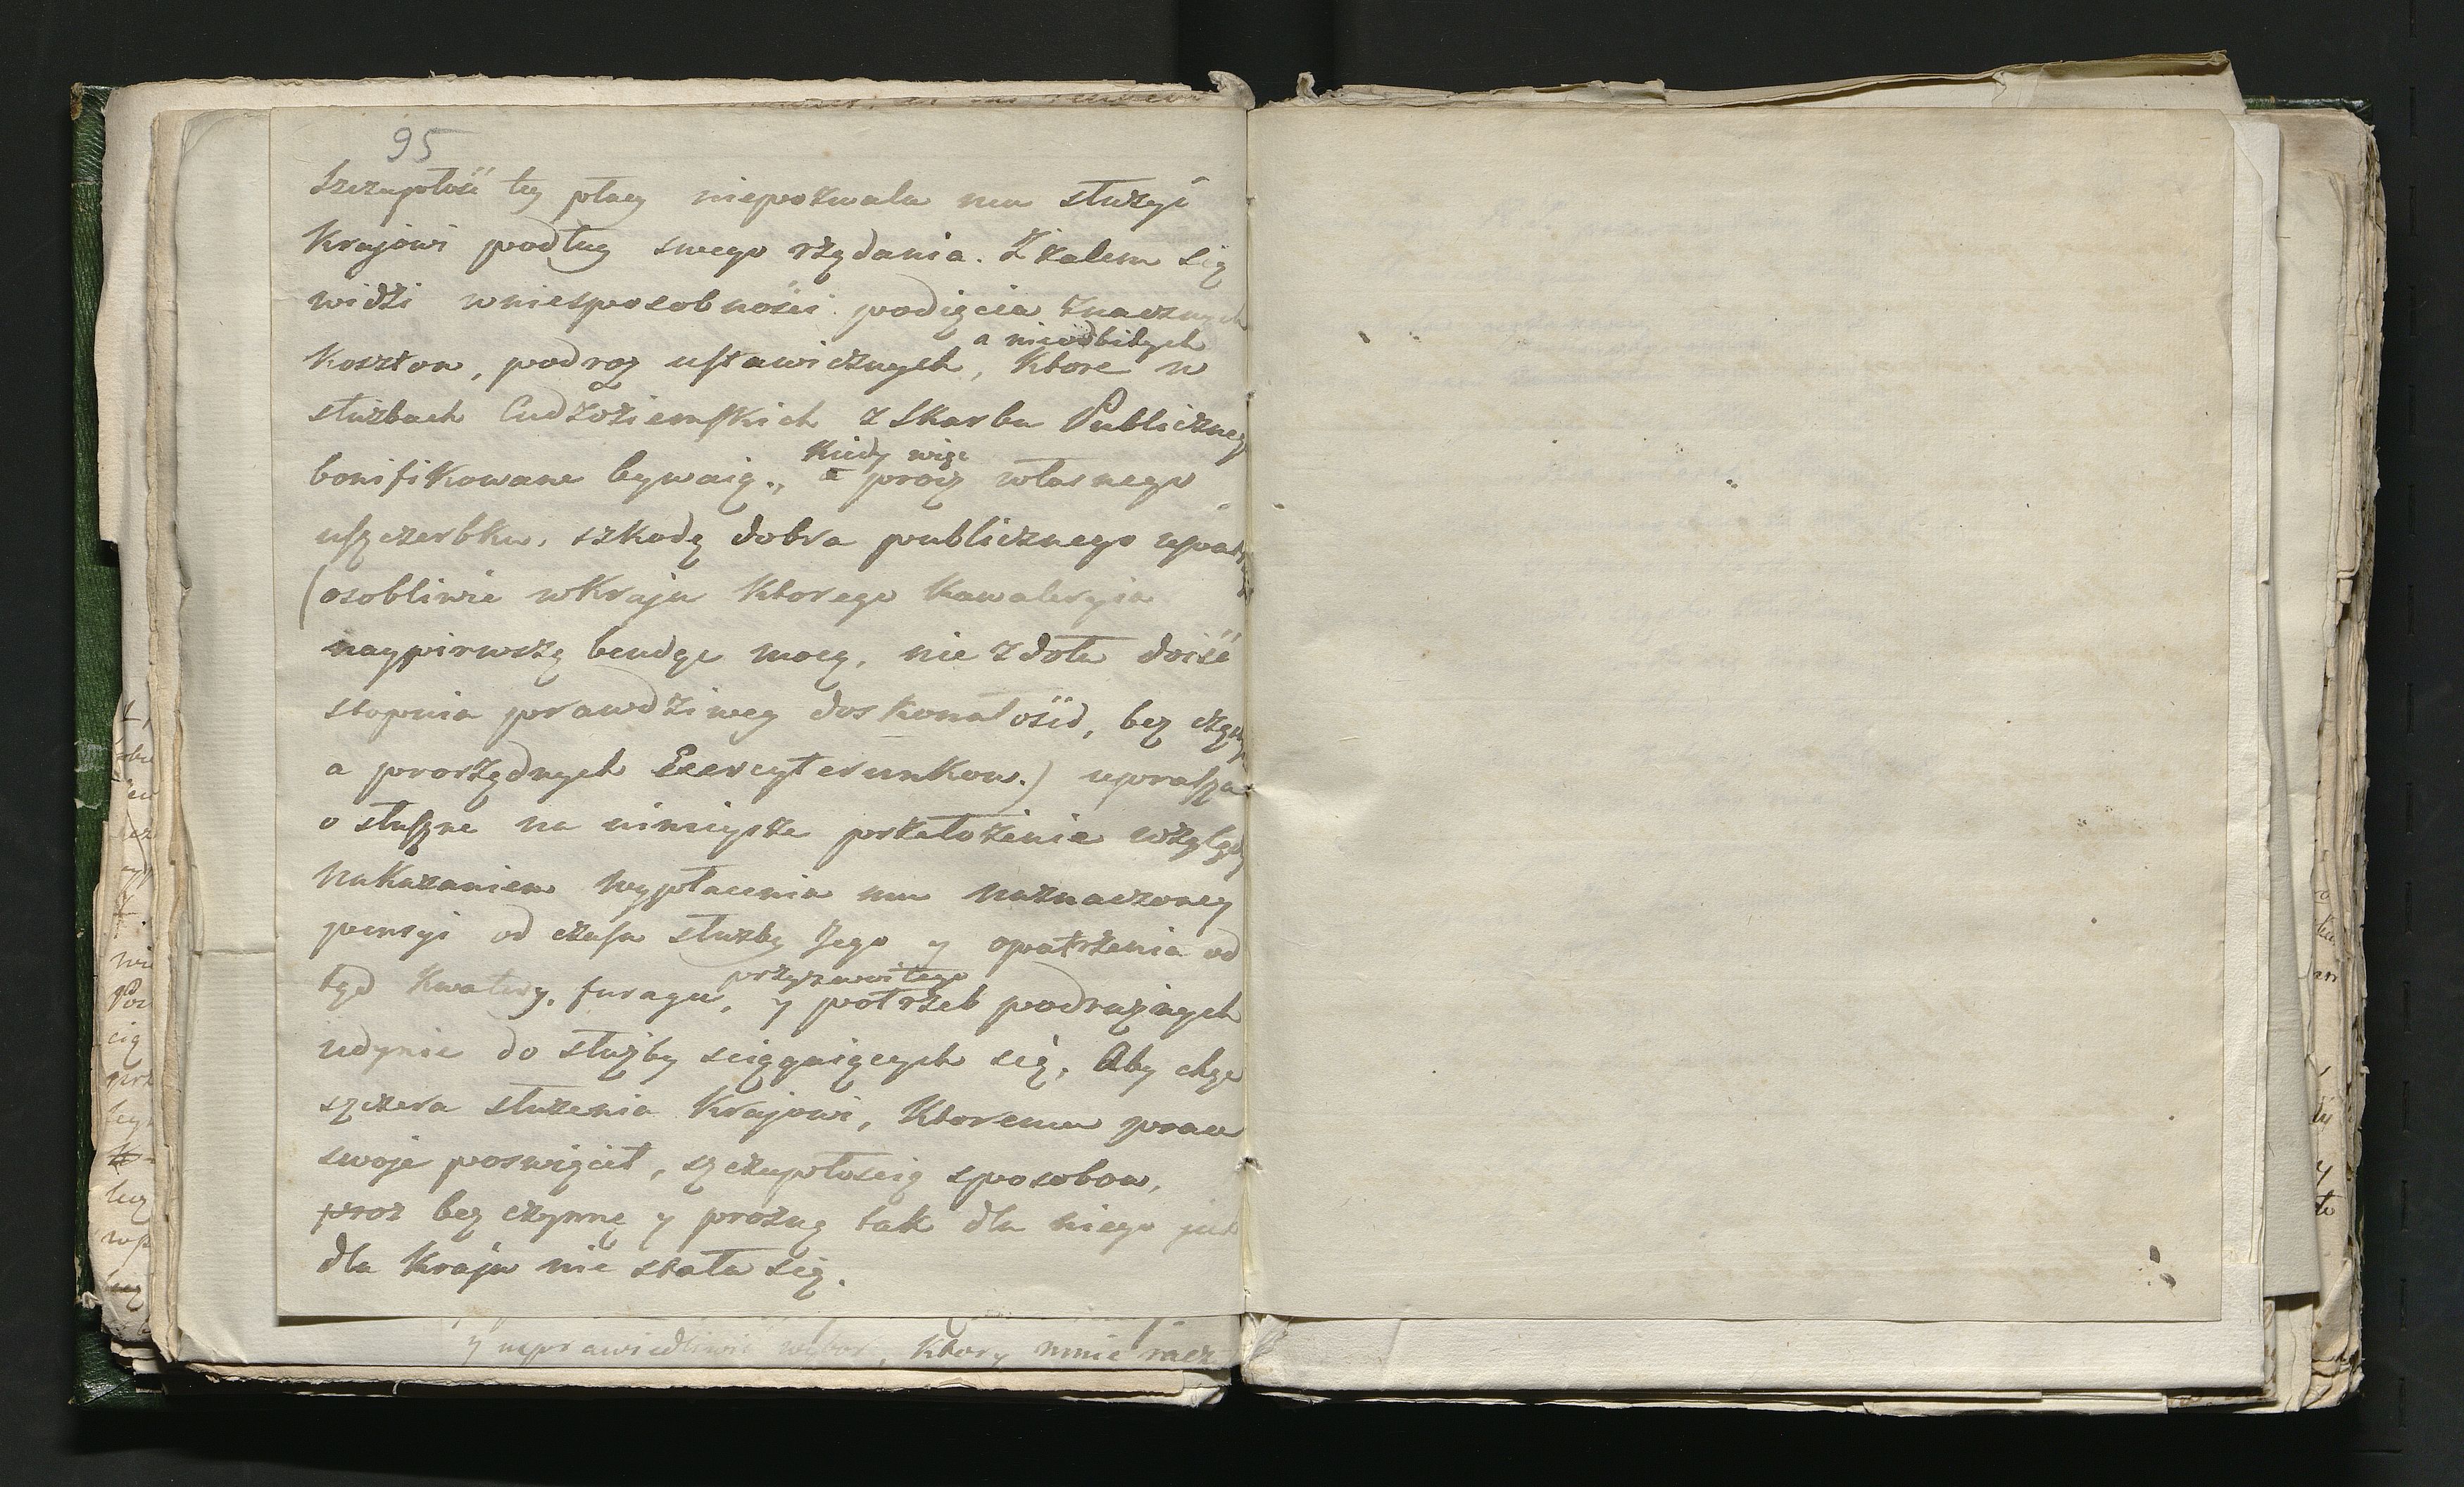 95
Szczupłość tey płacy niepozwala mu służyć
Krajowi podług swego rżądania. Z żalem się
widżi wniesposobnośći podięcia znacznych
a nieodbitych
kosztow, podroż ustawicznych, ktore w
służbach Cudzoziemskich z Skarbu Publicznego
bonifikowane bywaią.,
kiedy więc
procz własnego
uszczerbku, szkodę dobra publicznego
(osobliwie wkraju ktorego kawaleryia
naypirwszą bendąc mocą, nie zdoła doiść
stopnia prawdziwey doskonałośći, bez
a porżądnych Exercyterunkow.) uprasza
o słuszne na ninieysze przełożenie
nakazaniem wypłacenia mu naznaczoney
pensyi od czasu służby Jego y opatrżenia od
przyzwoitego
tąd kwatery, furażu, y potrżeb podrużnych
iedynie do służby sciągaiących się, Aby chęć
szczera służenia Krajowi, ktoremu prace
swoje poswięcił, szczupłoscią sposobow,
bezczynną y prożną tak dla niego jak
dla kraju nie stała się.
y nsprawiedliwić wybor, ktory mnie racz